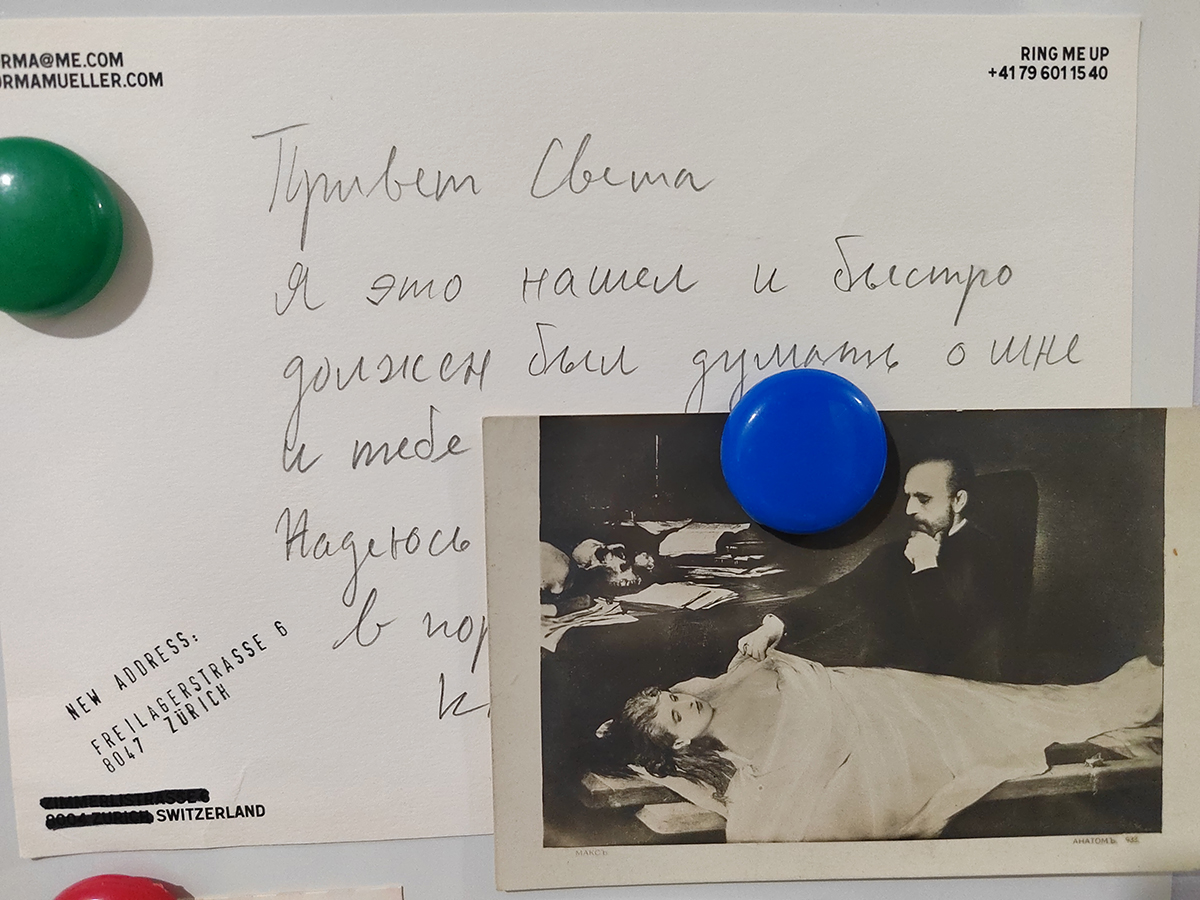 RMA@ME.COM
ORMAMUELLER.COM
RING ME UP
+41 79 601 15 40
Привет Света
Я это нашел и быстро
должен был думать о мне
и тебе
Надеюсь
в пор
К
NEW ADDRESS:
FREILAGERSTRASSE 6
8047 ZÜRICH
SWITZERLAND
МАКСЪ
АНАТОМЪ